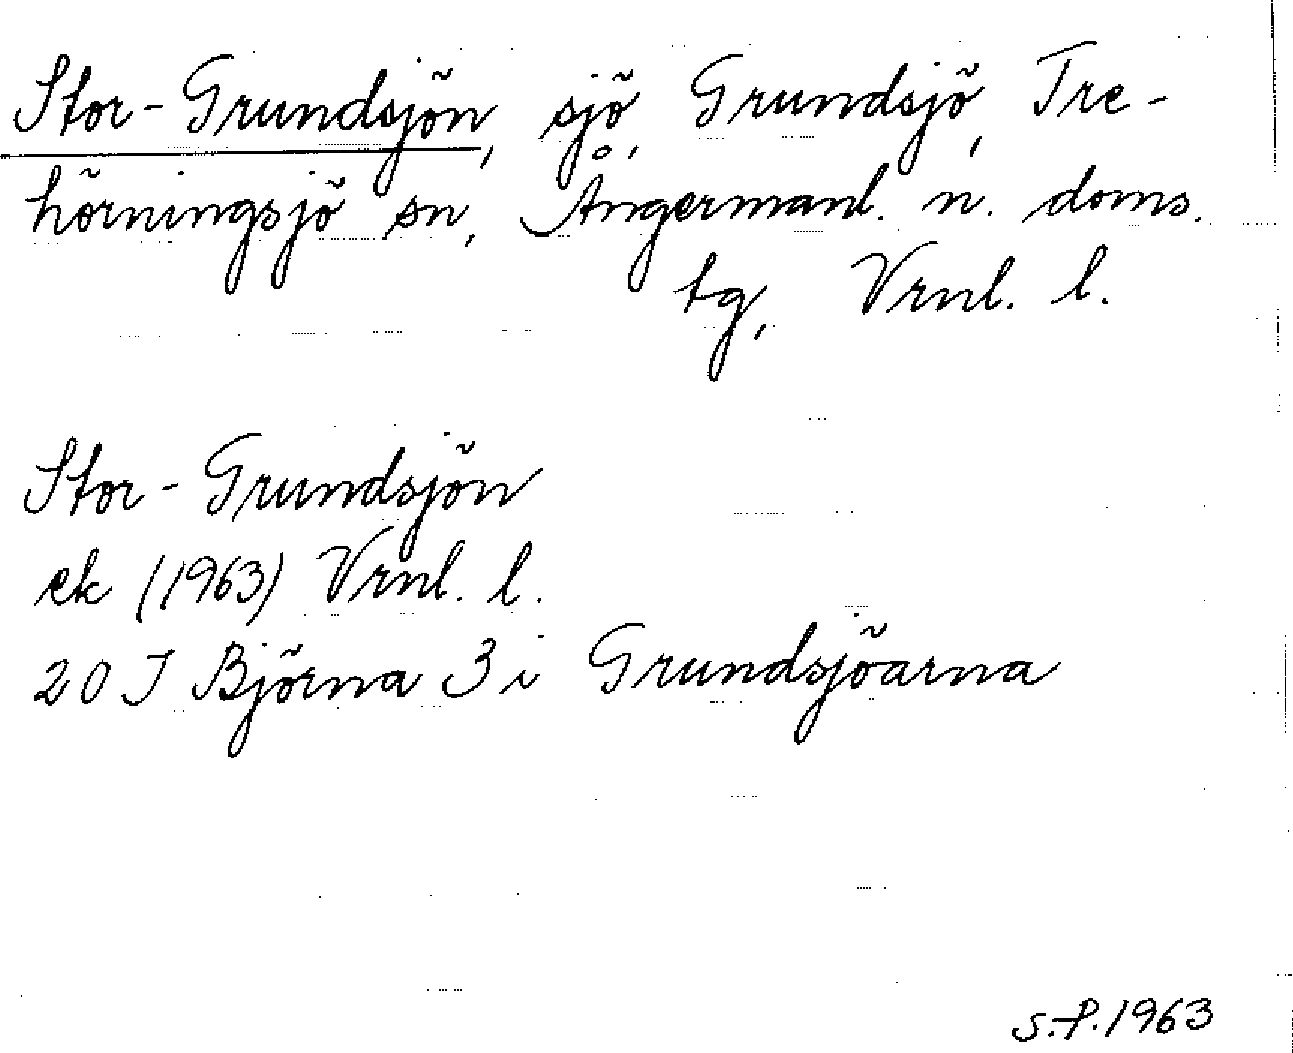 Stor-Grundsjön, sjö, Grundsjö, Tre-
hörningsjö sn, Ångermanl. n. doms.
tg, Vrnl. l.
Stor-Grundsjön
ek (1963) Vrnl. l.
20 J Björna 3 i Grundsjöarna
S.P. 1963